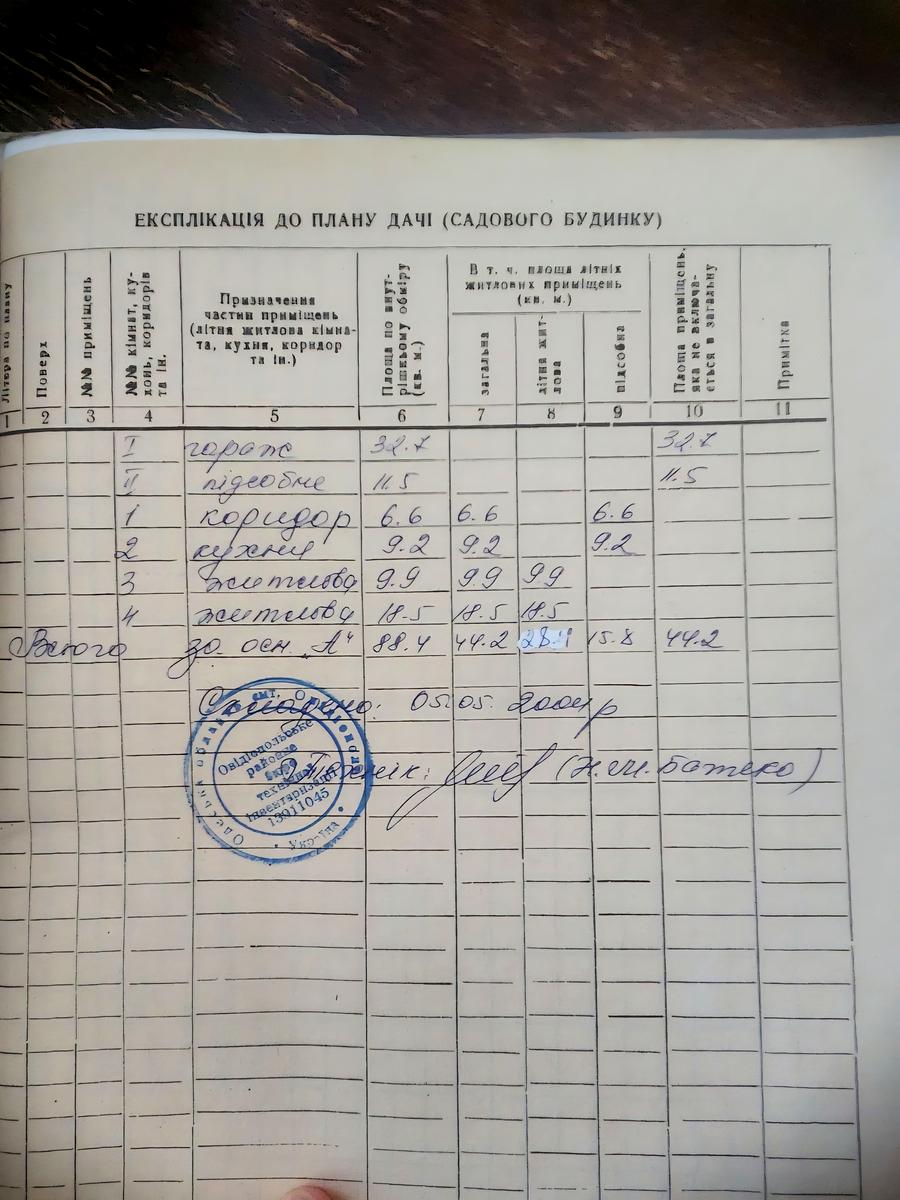 ЕКСПЛІКАЦІЯ ДО ПЛАНУ ДАЧІ (САДОВОГО БУДИНКУ)
Літера по плану
Поверх
№№ приміщень
№№ кімнат, ку-
хонь, коридорів
та ін.
Призначення
частин приміщень
(літня житлова кімна-
та, кухня, коридор
та ін.)
Площа по внут-
рішньому обміру
(кв. м.)
В т. ч. площа літніх
житлових приміщень
(кв. м.)
загальна
літня жит-
лова
підсобна
Площа приміщень,
яка не включа-
ється в загальну
Примітка
1 2 3 4 5 6 7 8 9 10 11
I гараж 32.7 32.7
II підсобне 11.5 11.5
1 коридор 6.6 6.6 6.6
2 кухня 9.2 9.2 9.2
3 житлова 9.9 9.9 9.9
4 житлова 18.5 18.5 18.5
Всього за осн. „А" 88.4 44.2 28.4 15.8 44.2
Складено: 05.05.2004р
Технік: (Н.М. Божеко)
Одеська область смт. Овідіополь
Овідіопольське
районне
бюро
технічної
інвентаризації
13911045
• Україна •